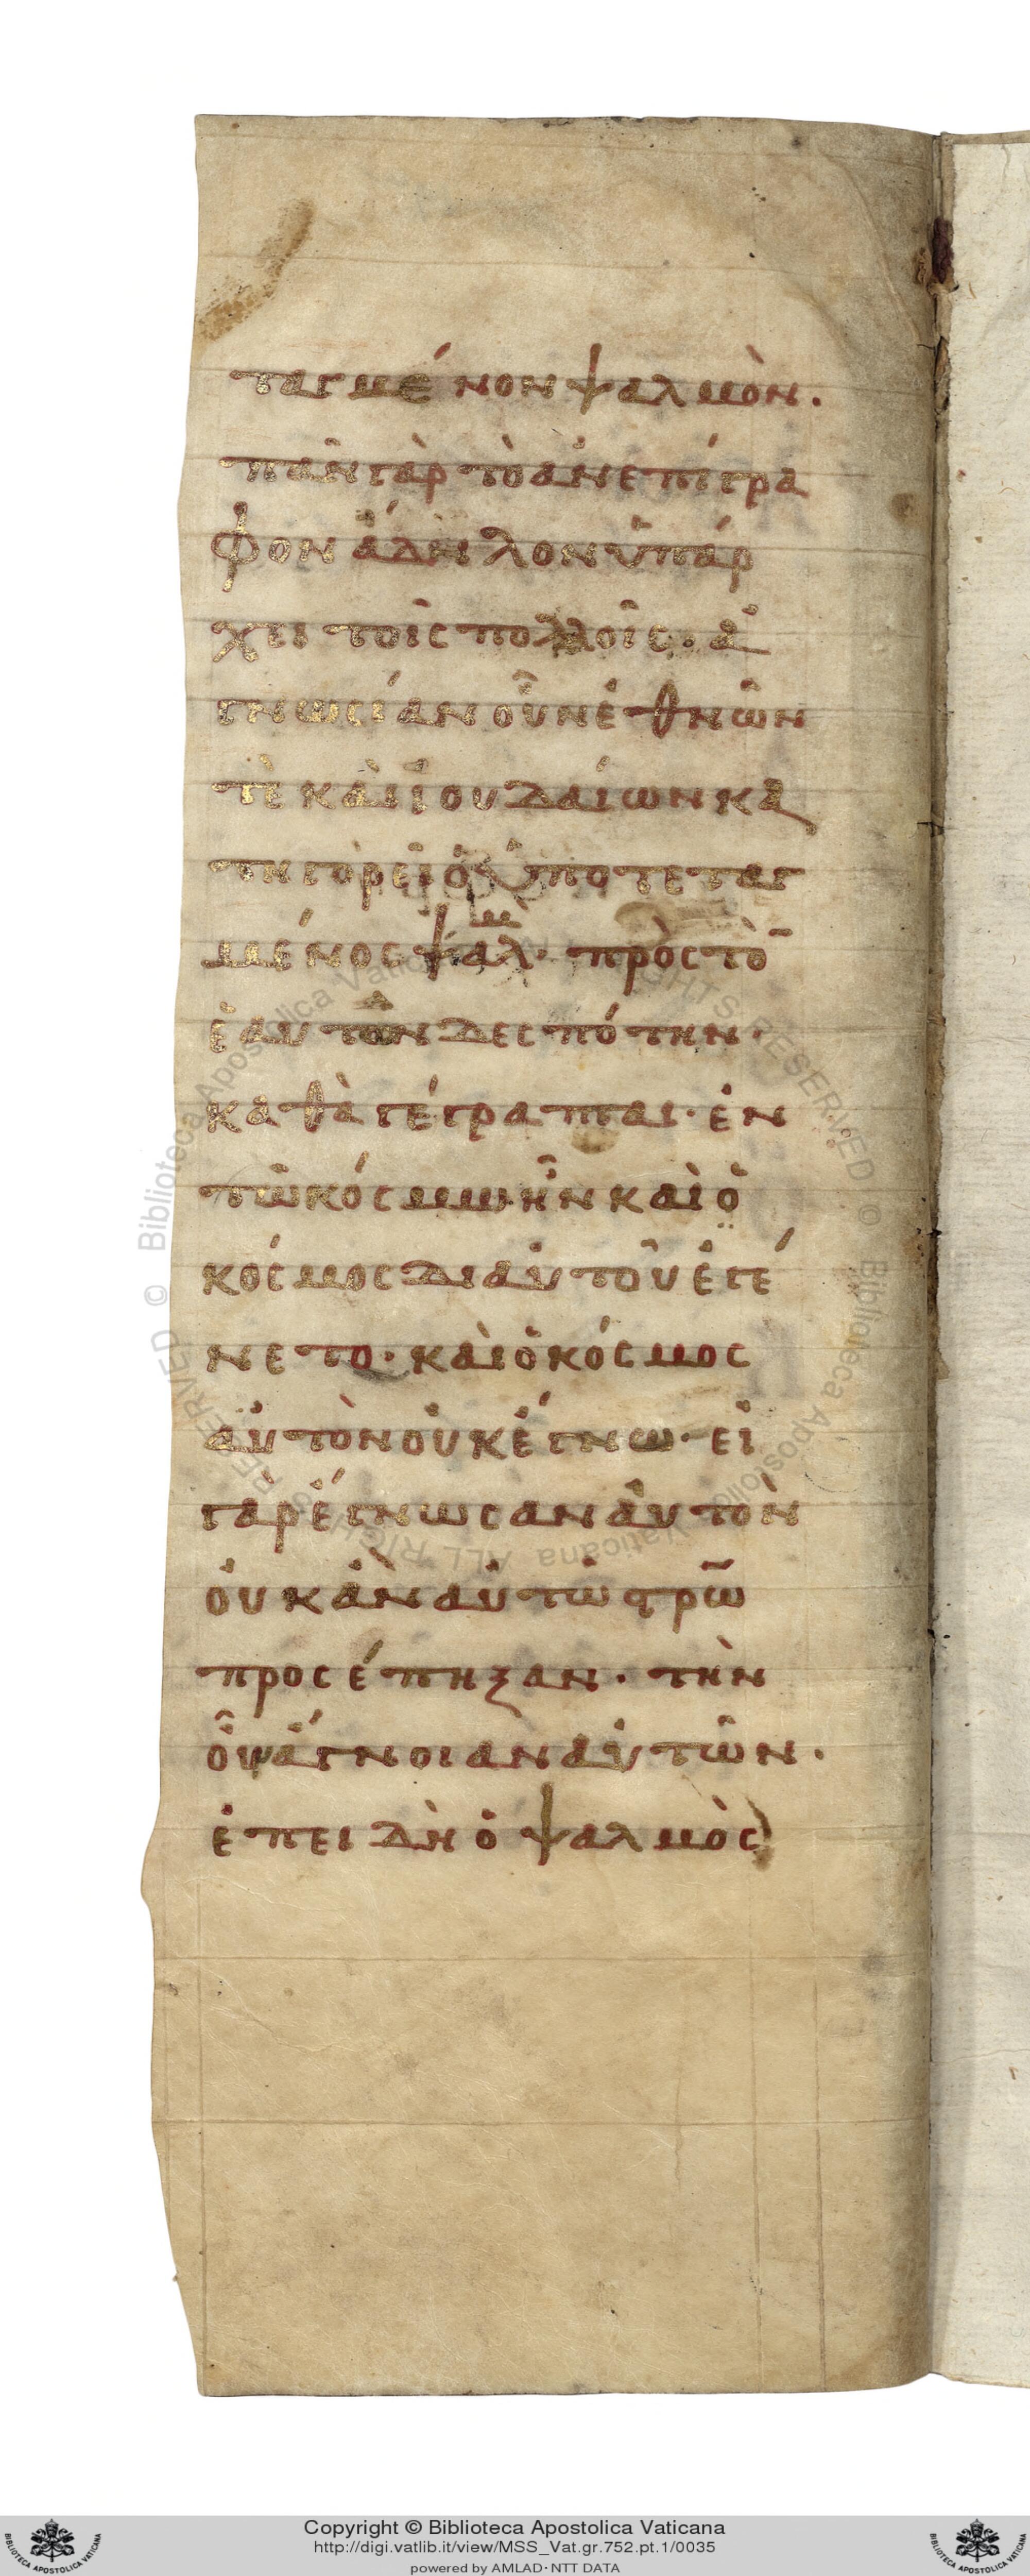 ταγμένον ψαλμὸν.
πᾶν γὰρ τὸ ἀνεπίγρα
φον ἄδηλον ὑπάρ
χει τοῖς πολλοῖς. ἀ
γνωσίαν οὖν ἐθνῶν
τὲ καὶ ἰουδαίων κα
τηγορεῖ ὁ ὑποτεταγ
μένος ψαλμ· πρὸς τὸ̄
ἑαυτῶν δεσπότην.
καθὰ γέγραπται· ἐν
τῶ κόσμω ἦν καὶ ὁ
κόσμος δι αὐτοῦ ἐγέ
νετο· καὶ ὁ κόσμος
αὐτὸν οὐκ ἔγνω· εἰ
γὰρ ἔγνωσαν αὐτὸν
οὐκ ἂν αὐτὼ ϛρω̄
προσέπηξαν. τὴν
οὖν ἄγνοιαν αὐτῶν.
ἐπειδὴ ὁ ψαλμὸς
Copyright © Biblioteca Apostolica Vaticana
http://digi.vatlib.it/view/MSS_Vat.gr.752.pt.1/0035
powered by AMLAD·NTT DATA